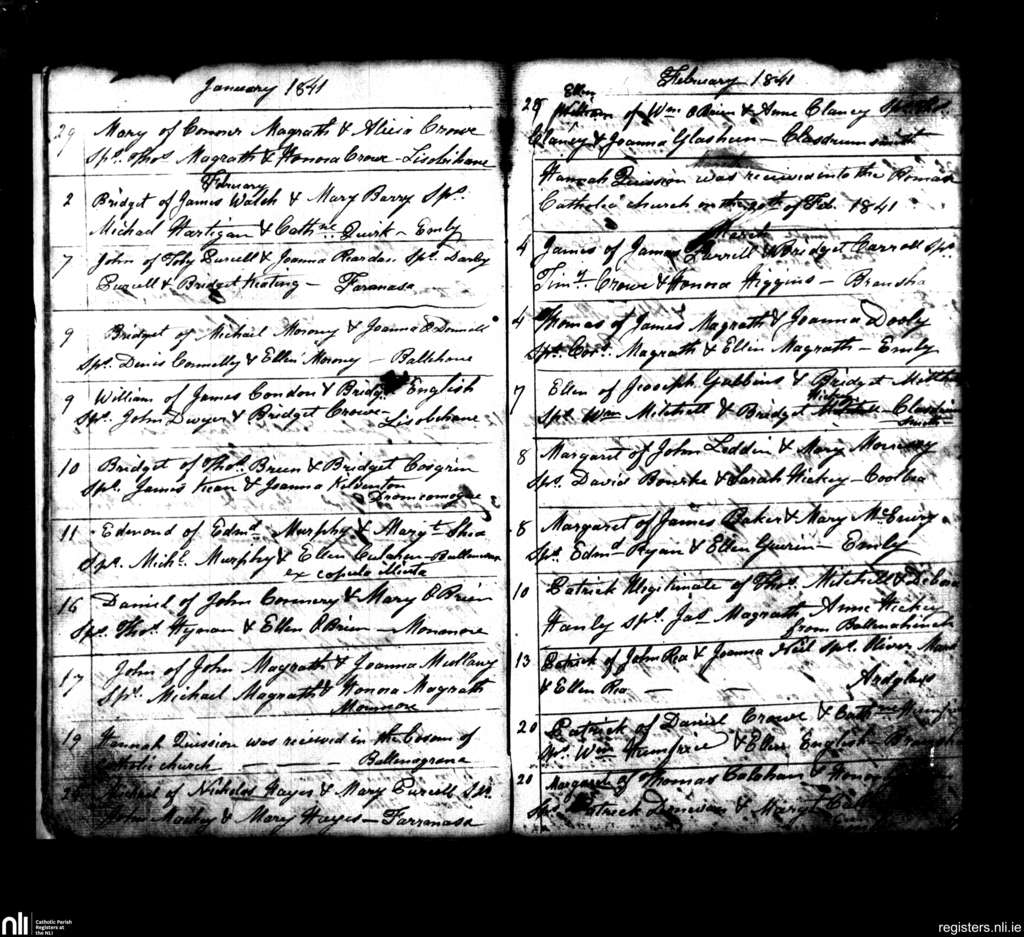 January 1841
29 Mary of Connor Magrath & Alicia Crowe
Sps. Thos. Magrath & Honora Crowe - Lisobihane
February
2 Bridget of James Walsh & Mary Barry Sps.
Michael Hartigan & Cathne Quirk - Emly
7 John of Toby Purcell & Joanna Reardan Sps. Darby
Purcell & Bridget Keating - Faranasa
9 Bridget of Michael Morony & Joanna O Donnell
Sps. Denis Connelly & Ellen Morony - Ballehone
9 William of James Condon & Bridget English
Sps. John Dwyer & Bridget Crowe - Lisobihane
10 Bridget of Thos. Breen & Bridget Cosgrin
Sps. James Kean & Joanna
Dromcomogue
11 Edmond of Edmd. Murphy & Margt. Shea
Sps. Michl. Murphy & Ellen
ex copula illicita
16 Daniel of John Connery & Mary O Brien
Sps. Thos. Hynan & Ellen O Brien - Monamore
17 John of John Magrath & Joanna Mullany
Sps. Michael Magrath & Honora Magrath
Monmore
19 Hannah Quission was received in the bosom of
Catholic church - - Ballenagrana
Michael of Nicholas Hayes & Mary Purcell Sps.
John & Mary Hayes - Farranasa
February 1841
Ellen
28 William of Wm. O Brien & Anne Clancy Sps.
Clancy & Joanna Glasheen - Clasdrumsmith
Hannah Quission was received into the Roman
Catholic church on the 20th of Feb. 1841
March
4 James of James Farrell & Bridget Carroll Sps.
Timy. Crowe & Honora Higgins - Bransha
4 Thomas of James Magrath & Joanna Dooly
Sps. Cors. Magrath & Ellen Magrath - Emly
7 Ellen of Jeoseph Gubbins & Bridget
Sps. Wm. Mitchell & Bridget
8 Margaret of John Leddin & Mary Morissey
Sps. David Bourke & Sarah Hickey - Coolbea
8 Margaret of James Baker & Mary McEniry
Sps. Edmd. Ryan & Ellen Guerin - Emly
10 Patrick Illegitimate of Thos. Mitchell & Debora
Hanly Sps. Jas. Magrath Anne Hickey
from Ballenahinch
13 Patrick of John Rea & Joanna Neil Sps. Oliver
& Ellen Rea - - Ardglass
20 Patrick of Daniel Crowe & Cathne
Sps. Wm. Humfrie & Ellen English -
20 Margaret of Thomas Colohan & Honor
Sps. Patrick & Margt.
nli Catholic Parish
Registers at
the NLI
registers.nli.ie